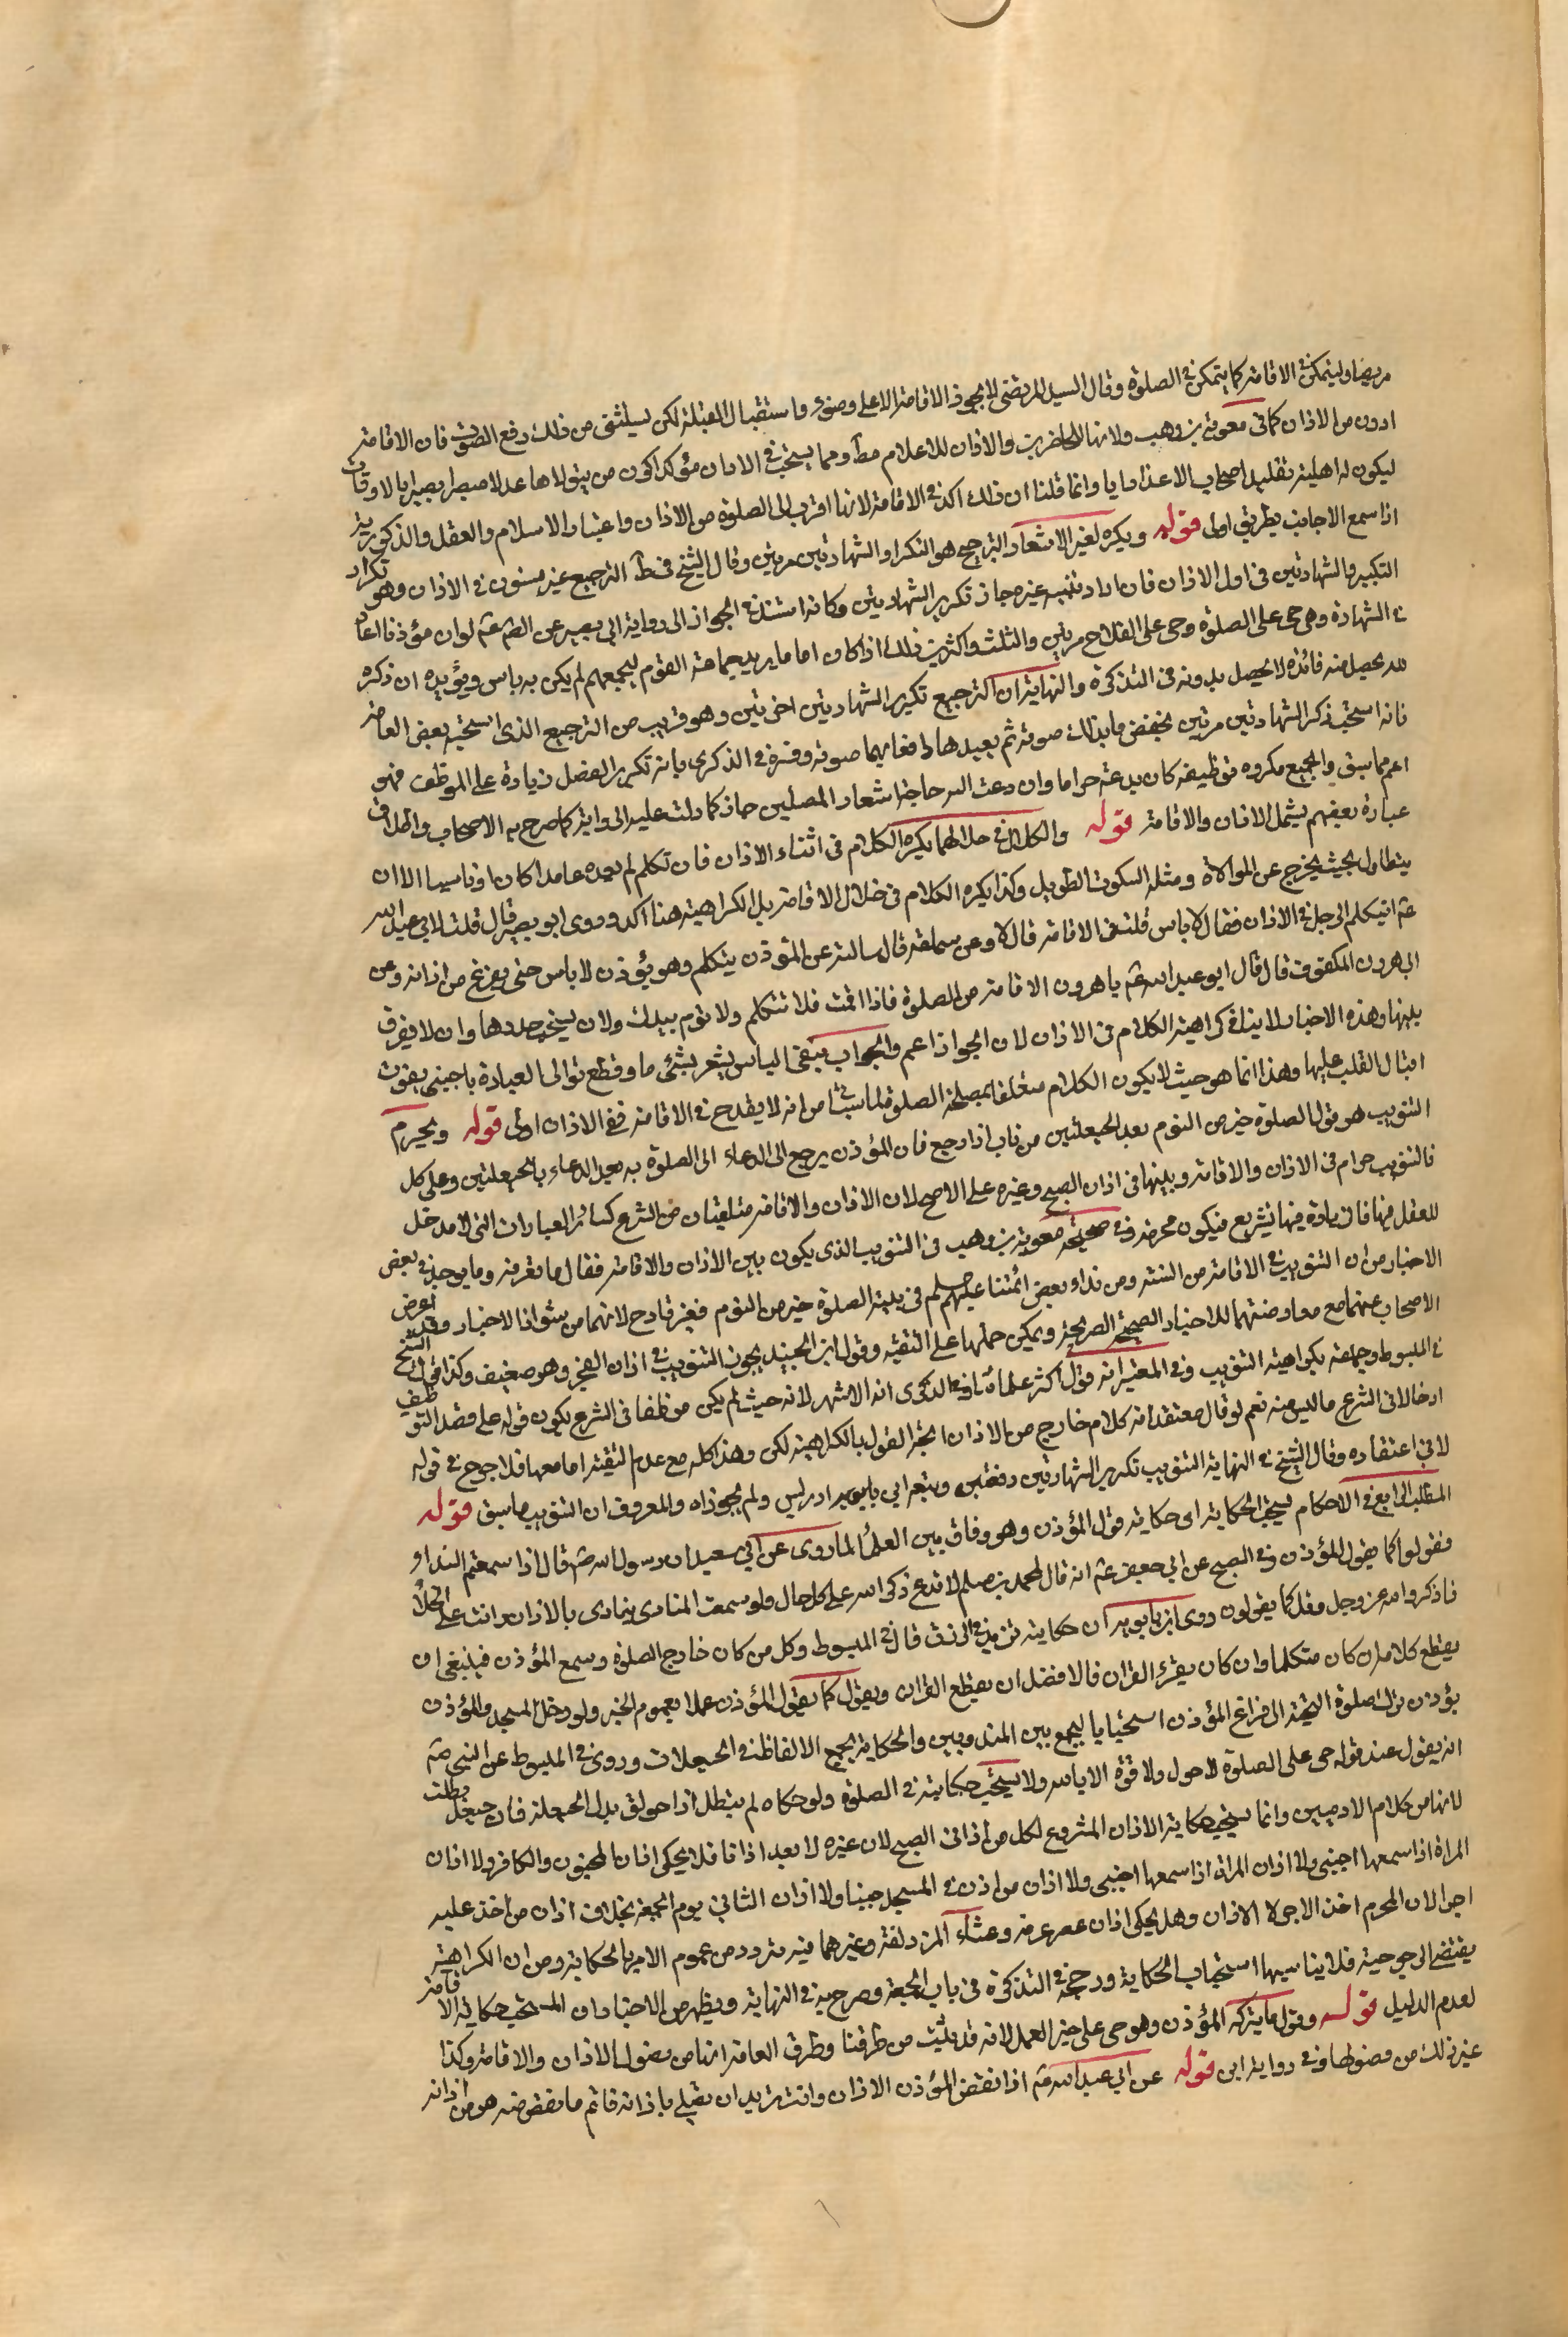 مريضا وليتمكن في الاقامة كما يتمكن في الصلوة وقال السيد المرتضى لا يجوز الاقامة الا على وضوء واستقبال القبلة لكن يستثنى من ذلك رفع الصوت فان الاقامة
ادون من الاذان كما في معوية بن وهب ولانها للحاضرين والاذان للاعلام مط ومما يستحب في الاذان مؤكدا كون من يتولاها عدلا مبصرا بصيرا بالاوقات
ليكون له اهلية تقليد اصحاب الاعذار وانما قلنا ان ذلك اكد في الاقامة لانها اقرب الى الصلوة من الاذان واعتبار الاسلام والعقل والذكورية
اذا سمع الاجانب بطريق اولى قوله ويكره لغير الاشعار الترجيع هو التكرار والشهادتين مرتين وقال الشيخ في ط الترجيع غير مسنون في الاذان وهو تكرار
التكبير والشهادتين في اول الاذان فان اراد تنبيه غيره جاز تكرير الشهادتين وكانه استند في الجواز الى رواية ابي بصير عن الصم عم لو ان مؤذنا اعاد
في الشهادة وفي حي على الصلوة وحي على الفلاح مرتين والثلث واكثر من ذلك اذا كان اماما يريد جماعة القوم ليجمعهم لم يكن به باس ويؤيده ان ذكره
لله يحصل منه فائدة لا يحصل بدونه في التذكرة والنهاية ان الترجيع تكرير الشهادتين اخرتين وهو قريب من الترجيع الذي استحبه بعض العامة
فانه استحب ذكر الشهادتين مرتين يخفض بذلك صوته ثم يعيدها رافعا بهما صوته وفسره في الذكرى بانه تكرير الفصل زيادة على الموظف فهو
اعم مما سبق والجميع مكروه توظيفه كان بدعة حراما وان دعت اليه حاجة اشعار المصلين جاز كما دلت عليه الرواية كما صرح به الاصحاب واطلاق
عبارة بعضهم يشمل الاذان والاقامة قوله والكلام في خلالهما يكره الكلام في اثناء الاذان فان تكلم لم يعده عامدا كان او ناسيا الا ان
يتطاول بحيث يخرج عن الموالاة ومثله السكوت الطويل وكذا يكره الكلام في خلال الاقامة بل الكراهية هنا اكد وروى ابو بصير قال قلت لابي عبد الله
عم ايتكلم الرجل في الاذان فقال لا باس قلت في الاقامة قال لا وعن سماعة قال سالته عن المؤذن يتكلم وهو يؤذن لا باس حتى يفرغ من اذانه وعن
ابي هرون المكفوف قال قال ابو عبد الله عم يا هرون الاقامة من الصلوة فاذا اقمت فلا تتكلم ولا توم بيدك ولان يستحب حدرها وان لا يفرق
بينها وهذه الاخبار لا ينافي كراهية الكلام في الاذان لان الجواز اعم والجواب بنفي الباس يشعر بشيء ما وقطع توالي العبادة باجنبي يفوت
اقبال القلب عليها وهذا انما هو حيث لا يكون الكلام متعلقا بمصلحة الصلوة لما سيا من انه لا يقدح في الاقامة ففي الاذان اولى قوله ويحرم
التثويب هو قول الصلوة خير من النوم بعد الحيعلتين من ثاب اذا رجع فان المؤذن يرجع الى الدعاء الى الصلوة به بعد الدعاء بالحيعلتين وعلى كل
فالتثويب حرام في الاذان والاقامة وبينها في اذان الصبح وغيره على الاصح لان الاذان والاقامة متلقيان من الشرع كسائر العبادات التي لا مدخل
للعقل فيها فالزيادة فيها تشريع فيكون محرمة وفي صحيحة معوية بن وهب في التثويب الذي يكون بين الاذان والاقامة فقال ما نعرفه وما يوجد في بعض
الاخبار من ان التثويب في الاقامة من السنة ومن نداء بعض ائمتنا عليهم سلم في بيته الصلوة خير من النوم فغير قادح لانهما من شواذ الاخبار وقد اعرض
الاصحاب عنهما مع معارضتهما للاخبار الصحيحة الصريحة ويمكن حملها على التقية وقول ابن الجنيد يجوز التثويب في اذان الفجر وهو ضعيف وكذا قول الشيخ
في المبسوط وجماعة بكراهية التثويب وفي المعتبر انه قول اكثر علمائنا وفي الذكرى انه الاشهر لانه حيث لم يكن موظفا في الشرع يكون قوله على قصد التوظيف
ادخالا في الشرع ما ليس منه نعم لو قال معتقدا انه كلام خارج من الاذان اتجه القول بالكراهية لكن وهذا كله مع عدم التقية اما معها فلا حرج في قوله
لا في اعتقاده وقال الشيخ في النهاية التثويب تكرير الشهادتين دفعتين وتبعه ابن بابويه ادريس ولم يجوزاه والمعروف ان التثويب ما سبق قوله
المطلب الرابع في الاحكام يستحب الحكاية اي حكاية قول المؤذن وهو وفاق بين العلماء لما روى عن ابي سعيد ان رسول الله ص قال اذا سمعتم النداء
فقولوا كما يقول المؤذن وفي الصحيح عن ابي جعفر عم انه قال لمحمد بن مسلم لا تدع ذكر الله على كل حال ولو سمعت المنادي ينادي بالاذان وانت على الخلاء
فاذكر الله عز وجل وقل كما يقولون روى ابن بابويه ان حكايته تزيد في الرزق قال في المبسوط وكل من كان خارج الصلوة وسمع المؤذن فينبغي ان
يقطع كلامه ان كان متكلما وان كان يقرء القران فالافضل ان يقطع القران ويقول كما يقول المؤذن عملا بعموم الخبر ولو دخل المسجد والمؤذن
يؤذن ترك صلوة التحية الى فراغ المؤذن استحبابا ليجمع بين المندوبين والحكاية لجميع الالفاظ في الحيعلات وروى في المبسوط عن النبي ص
انه يقول عند قوله حي على الصلوة لا حول ولا قوة الا بالله ولا يستحب حكايته في الصلوة ولو حكاه لم يبطل اذا حولق بدل الحيعلة فان حيعل بطلت
لانها من كلام الادميين وانما يستحب حكاية الاذان المشروع لكل من اذان الصبح لان غيره لا يعد اذانا فلا يحكى اذان المجنون والكافر ولا اذان
المراة اذا سمعها اجنبي ولا اذان المراة اذا سمعها اجنبي ولا اذان من اذن في المسجد جنبا ولا اذان الثاني يوم الجمعة بخلاف اذان من اخذ عليه
اجرا لان المحرم اخذ الاجر لا الاذان وهل يحكى اذان عصر عرفة وعشاء المزدلفة وغيرهما فيه تردد من عموم الامر بالحكاية ومن ان الكراهية
يقتضي المرجوحية فلا يناسبها استحباب الحكاية ورجحه في التذكرة في باب الجمعة وصرح به في النهاية ويظهر من الاخبار ان المستحب حكاية الاقامة
لعدم الدليل قوله وقول ما يتركه المؤذن وهو حي على خير العمل لانه قد يثبت من طرقنا وطرق العامة انها من فصول الاذان والاقامة وكذا
غير ذلك من فصولها وفي رواية ابن قوله عن ابي عبد الله عم اذا نقص المؤذن الاذان وانت تريد ان تصلي باذانه فاتم ما نقص منه هو من اذانه